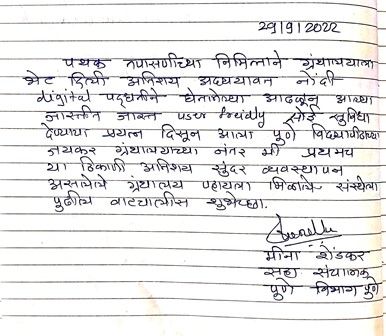 29/9/2022
पथक तपासणीच्या निमित्ताने ग्रंथालयाला
भेट दिली अतिशय अद्ययावत नोंदी
digital पद्धतीने घेतलेल्या आढळून आल्या
जास्तीत जास्त user friendly सोई सुविधा
देण्याचा प्रयत्न दिसून आला पुणे विद्यापीठाच्या
जयकर ग्रंथालयाच्या नंतर मी प्रथमच
या ठिकाणी अतिशय सुंदर व्यवस्थापन
असलेले ग्रंथालय पहायला मिळाले संस्थेला
पुढील वाटचालीस शुभेच्छा.
मीना शेंडकर
सह संचालक
पुणे विभाग पुणे